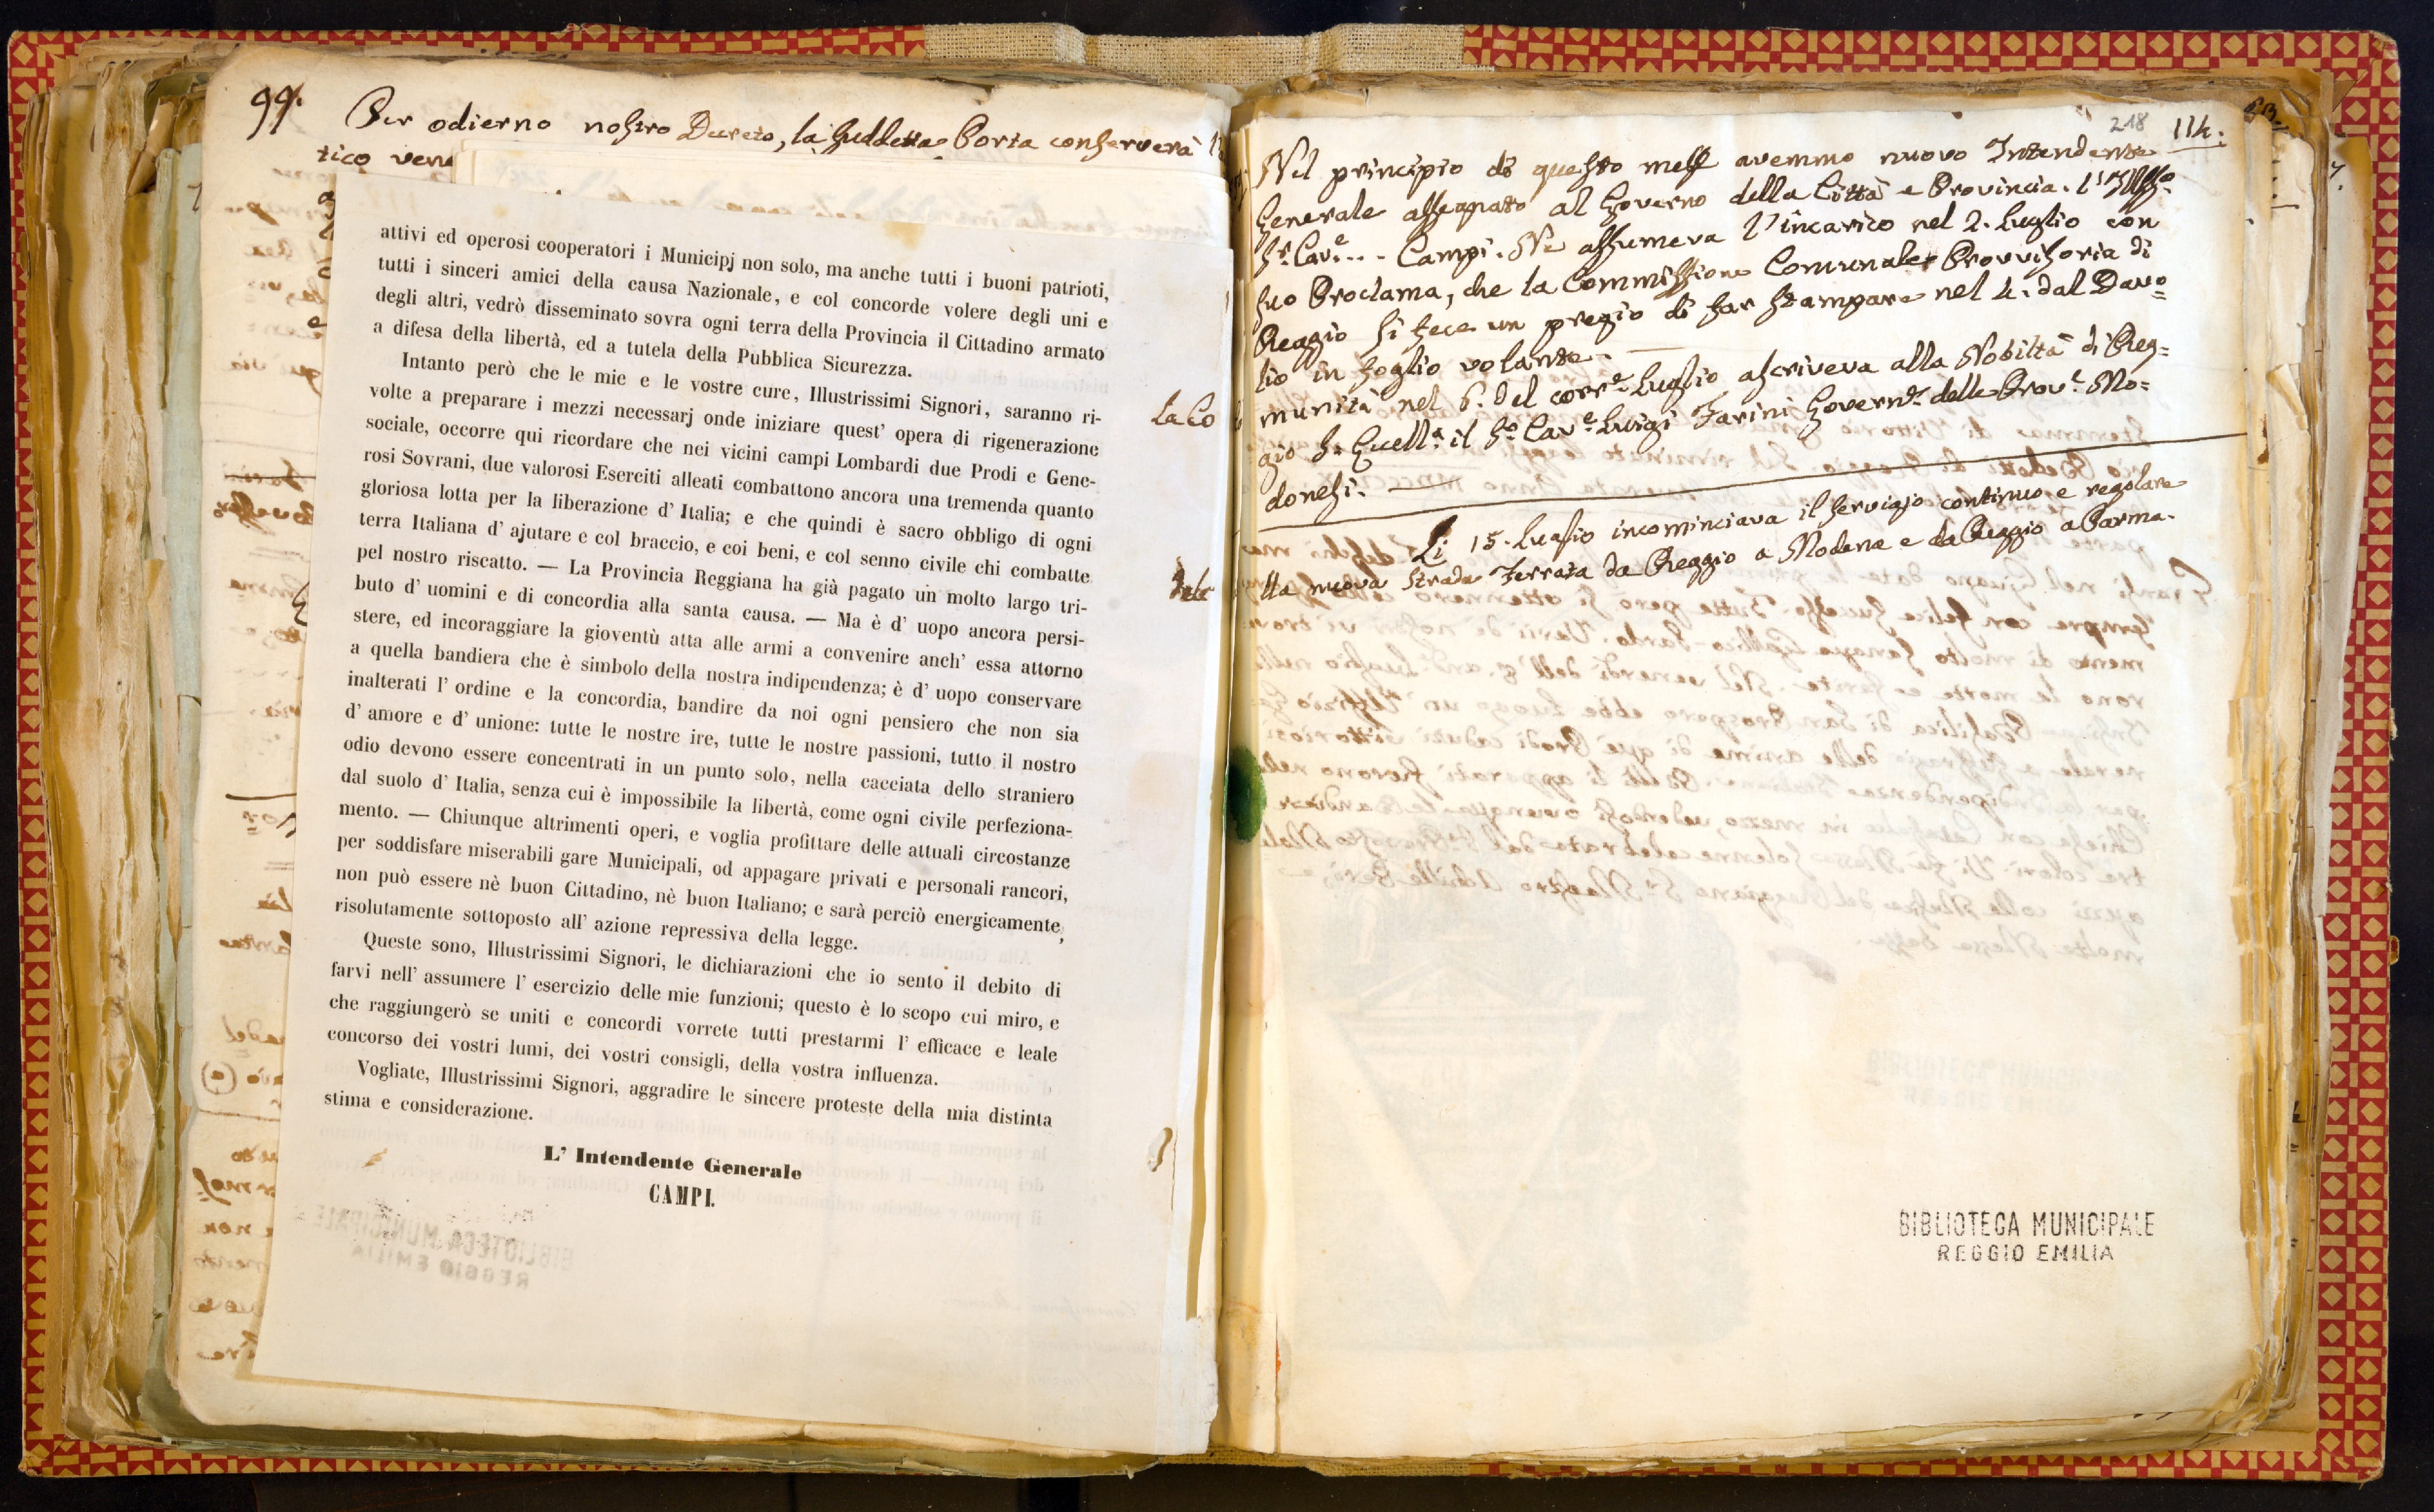 99.
Per odierno nostro Decreto, la suddetta Porta conserverà
tico
attivi ed operosi cooperatori i Municipj non solo, ma anche tutti i buoni patrioti,
tutti i sinceri amici della causa Nazionale, e col concorde volere degli uni e
degli altri, vedrò disseminato sovra ogni terra della Provincia il Cittadino armato
a difesa della libertà, ed a tutela della Pubblica Sicurezza.
Intanto però che le mie e le vostre cure, Illustrissimi Signori, saranno ri-
volte a preparare i mezzi necessarj onde iniziare quest' opera di rigenerazione
sociale, occorre qui ricordare che nei vicini campi Lombardi due Prodi e Gene-
rosi Sovrani, due valorosi Eserciti alleati combattono ancora una tremenda quanto
gloriosa lotta per la liberazione d' Italia; e che quindi è sacro obbligo di ogni
terra Italiana d' ajutare e col braccio, e coi beni, e col senno civile chi combatte
pel nostro riscatto. — La Provincia Reggiana ha già pagato un molto largo tri-
buto d' uomini e di concordia alla santa causa. — Ma è d' uopo ancora persi-
stere, ed incoraggiare la gioventù atta alle armi a convenire anch' essa attorno
a quella bandiera che è simbolo della nostra indipendenza; è d' uopo conservare
inalterati l' ordine e la concordia, bandire da noi ogni pensiero che non sia
d' amore e d' unione: tutte le nostre ire, tutte le nostre passioni, tutto il nostro
odio devono essere concentrati in un punto solo, nella cacciata dello straniero
dal suolo d' Italia, senza cui è impossibile la libertà, come ogni civile perfeziona-
mento. — Chiunque altrimenti operi, e voglia profittare delle attuali circostanze
per soddisfare miserabili gare Municipali, od appagare privati e personali rancori,
non può essere nè buon Cittadino, nè buon Italiano; e sarà perciò energicamente,
risolutamente sottoposto all' azione repressiva della legge.
Queste sono, Illustrissimi Signori, le dichiarazioni che io sento il debito di
farvi nell' assumere l' esercizio delle mie funzioni; questo è lo scopo cui miro, e
che raggiungerò se uniti e concordi vorrete tutti prestarmi l' efficace e leale
concorso dei vostri lumi, dei vostri consigli, della vostra influenza.
Vogliate, Illustrissimi Signori, aggradire le sincere proteste della mia distinta
stima e considerazione.
L' Intendente Generale
CAMPI.
218 114.
Nel principio di questo mese avemmo nuovo Intendente
Generale assegnato al Governo della Città e Provincia. l'Illsso.
Sr. Cave... Campi. Ne assumeva l'incarico nel 2. Luglio con
suo Proclama, che la Commissione Comunale Provvisoria di
Reggio si fece un pregio di far stampare nel 4. dal Davo=
lio in foglio volante. —
La Co
munità nel 6. del corre. Luglio ascriveva alla Nobiltà di Reg=
gio S. Ecella. il Sr. Cave. Luigi Farini Governe. delle Prove. Mo=
donesi. —
Li 15. Luglio incominciava il servigio continuo e regolare
lla nuova Strada Ferrata da Reggio a Modena e da Reggio a Parma.
BIBLIOTECA MUNICIPALE
REGGIO EMILIA